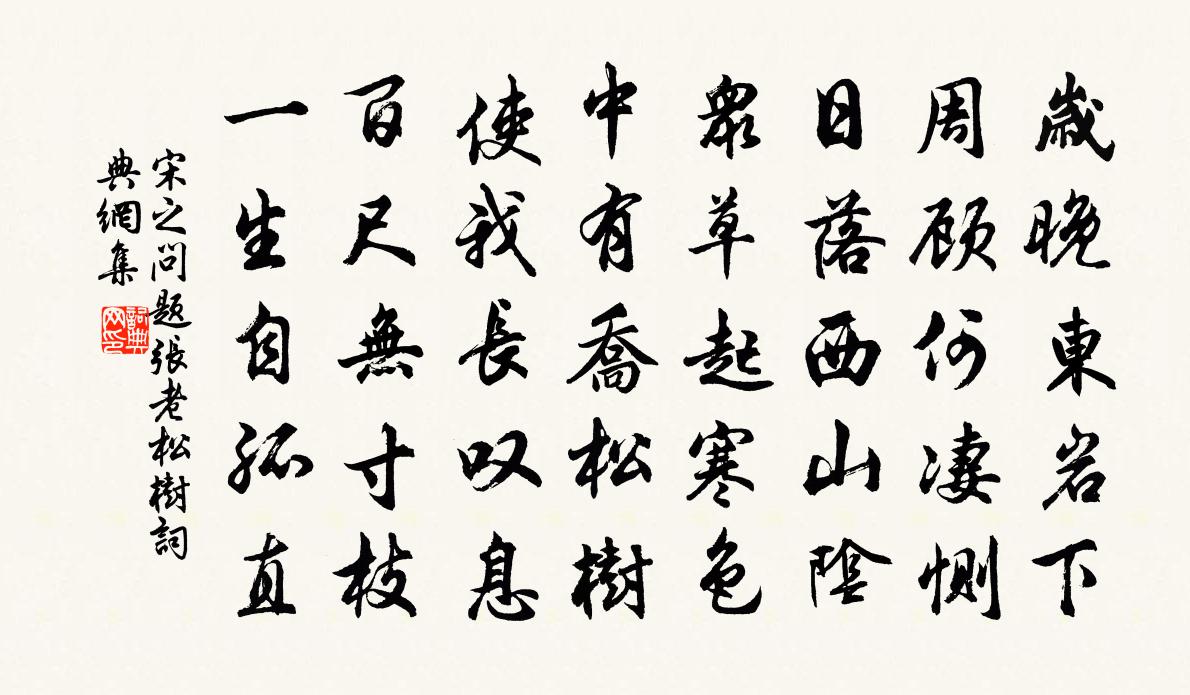 歲晚東岩下
周顾何淒惻
日落西山陰
眾草起寒色
中有喬松樹
使我長叹息
百尺無寸枝
一生自孤直
宋之问题張老松樹詞
典網集
詞典网印